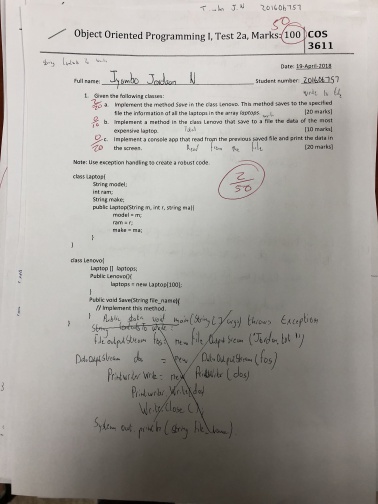 T J N 201606757
50
Object Oriented Programming I, Test 2a, Marks: 100
COS
3611
Date: 19-April-2018
Full name: Iyambo Jordan N Student number: 201606757
1. Given the following classes:
a. Implement the method Save in the class Lenovo. This method saves to the specified
file the information of all the laptops in the array laptops. [20 marks]
b. Implement a method in the class Lenovo that save to a file the data of the most
expensive laptop. [10 marks]
c. Implement a console app that read from the previous saved file and print the data in
the screen. Read from the file [20 marks]
Note: Use exception handling to create a robust code.
2
50
class Laptop{
String model;
int ram;
String make;
public Laptop(String m, int r, string ma){
model = m;
ram = r;
make = ma;
}
}
class Lenovo{
Laptop [] laptops;
Public Lenovo(){
laptops = new Laptop[100];
}
Public void Save(String file_name){
// Implement this method.
}
Public static void main(String [] args) throws Exception
String
FileOutputStream fos = new file OutputStream ("Jordan.txt")
DataOutputStream dos = new DataOutputStream (fos)
Printwriter write = new PrintWriter (dos)
Printwriter.Write(dos)
Write.Close ()
System.out.println (String file name)